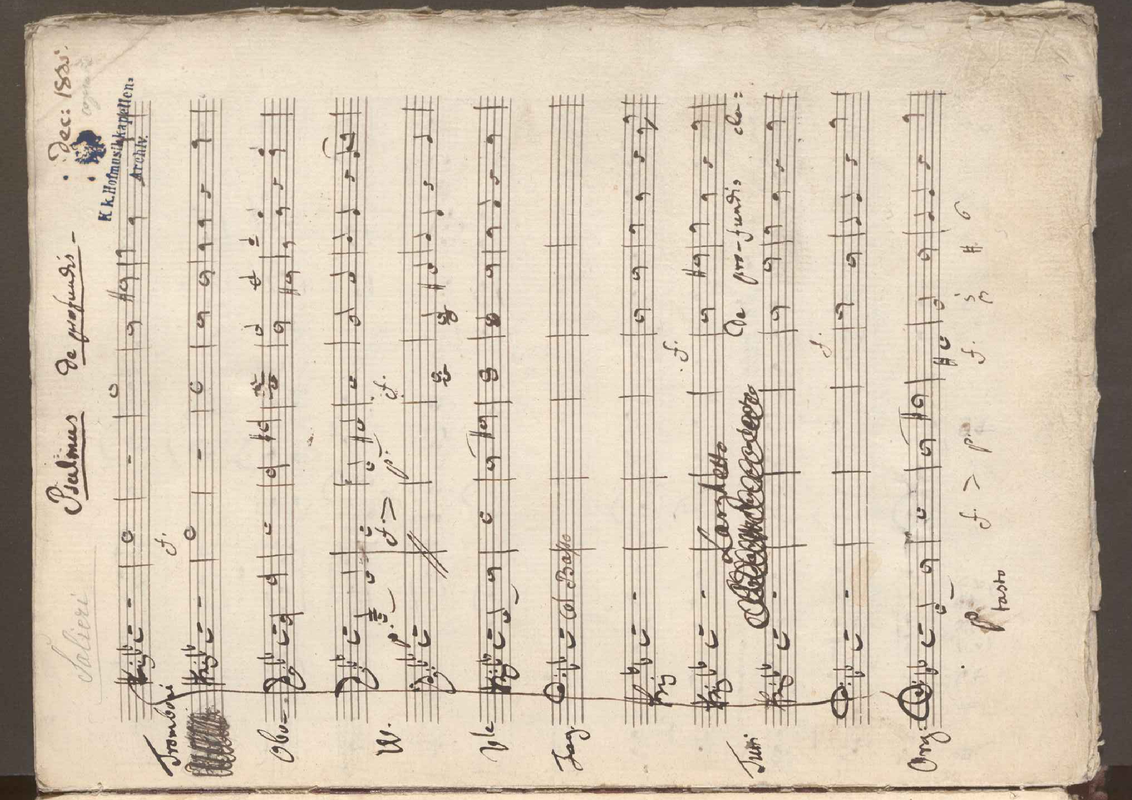 Salieri
Psalmus de profundis
Dec: 1805.
K.k. Hofmusikkapellen-
Archiv.
Tromboni
f.
Obo
W.
f. > p.
f.
Vle
Fag.
Col Basso
f.
Larghetto
Tutti
De pro-fundis cla=
f.
Org.
p
tasto
f. > p
f. 5 # 6
3